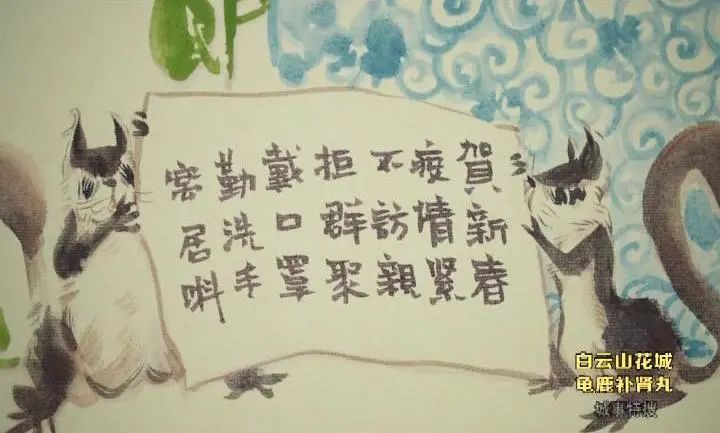 賀新春
疫情緊
不訪親
拒群聚
戴口罩
勤洗手
家居唞
白云山花城
龟鹿补肾丸
城事特搜